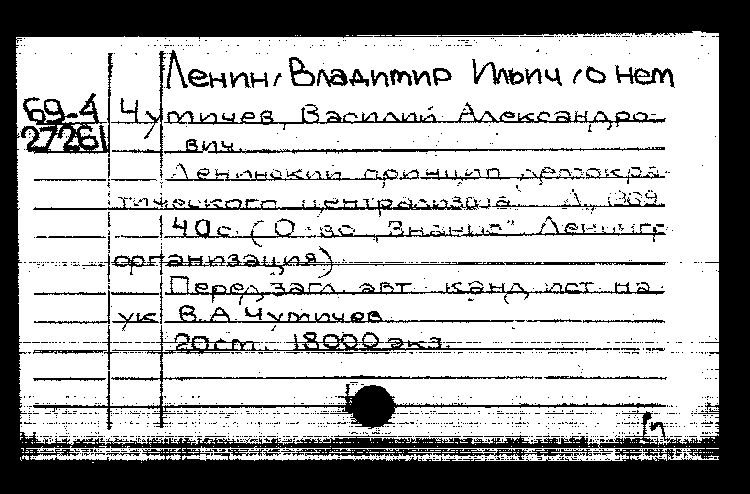 Ленин, Владимир Ильич, о нем
69-4 Чутичев, Василий Александро-
27261 вич.
Ленинский принцип демокра-
тического централизма. Л., 1969.
40с. (О-во „Знание" Ленингр
организация)
Перед загл. авт. канд. ист. на-
ук В. А. Чутичев
20см. 18000 экз.